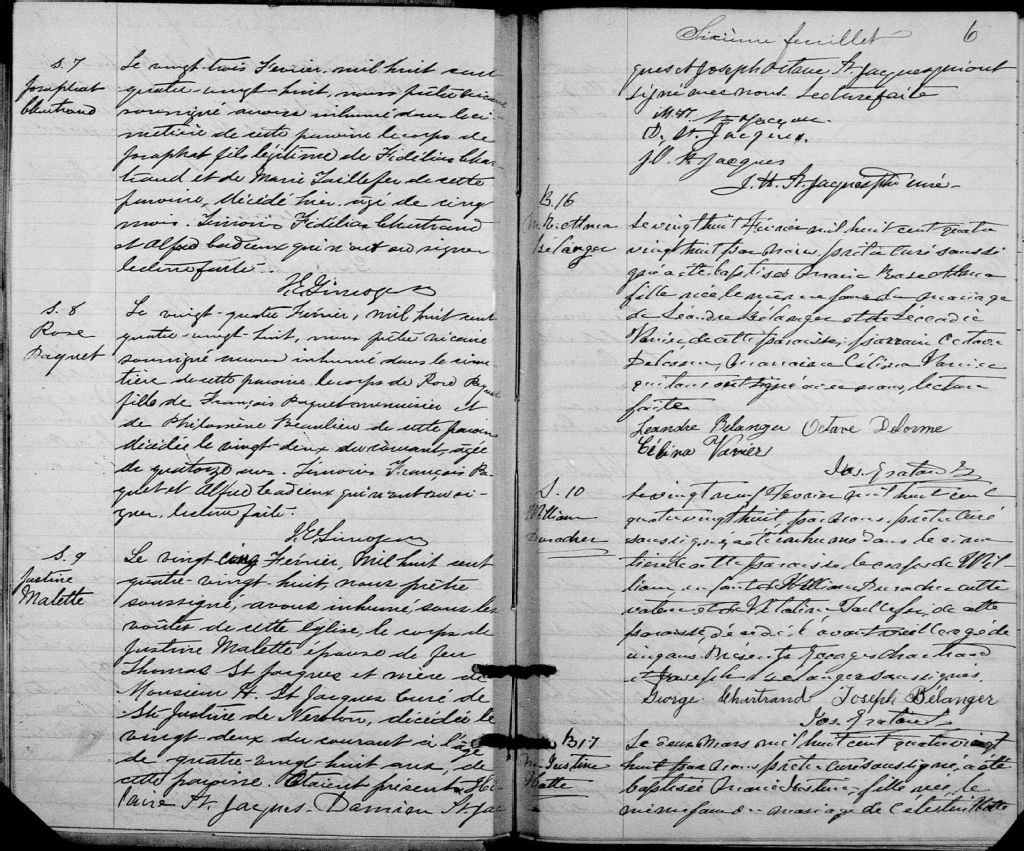 S. 7
Josaphat
Chartrand
Le vingt trois Février, mil huit cent
quatre-vingt-huit, nous prêtre vicaire
soussigné avons inhumé dans le ci-
metière de cette paroisse le corps de
Josaphat fils légitime de Fidélias Char-
trand et de Marie Taillefer de cette
paroisse, décédé hier, agé de cinq
mois. Témoins Fidélias Chartrand
et Alfred Cadieux qui n'ont su signer
lecture faite.
S. 8
Rose
Paquet
Le vingt-quatre Février, mil huit cent
quatre-vingt-huit, nous prêtre vicaire
soussigné avons inhumé dans le cime-
tière de cette paroisse le corps de Rose Paquet
fille de François Paquet menuisier et
de Philomène Beaulieu de cette paroisse
décédée le vingt-deux du courant, agée
de quatorze ans. Témoins François Pa-
quet et Alfred Cadieux qui n'ont su si-
gner, lecture faite.
S. 9
Justine
Malette
Le vingt cinq Février, mil huit cent
quatre-vingt-huit, nous prêtre
soussigné, avons inhumé, sous les
voûtes de cette Eglise, le corps de
Justine Malette épouse de feu
Thomas St Jacques et mère de
Monsieur H. St Jacques Curé de
Ste Justine de Newton, décédée le
vingt-deux du courant à l'âge
de quatre-vingt-huit ans, de
cette paroisse. Etaient présents Hi-
laire St. Jacques, Damien St. Jac
Sixième feuillet 6
ques et Joseph Octave St. Jacques qui ont
signé avec nous. Lecture faite
D. St. Jacques.
J.O. St. Jacques
J. H. St. Jacques Ptre curé
B. 16
M. R. Alma
Bélanger
Le vingt huit Février mil huit cent quatre
vingt huit par nous, prêtre curé soussi
gné a été baptisée Marie Rose Alma
fille née le même jour du mariage
de Léandre Bélanger et de Léocadie
Vanier de cette paroisse; parrain Octave
Delorme, marraine Célina Vanier
qui tous ont signé avec nous, lecture
faite
Leandre Belanger Octave Delorme
Célina Vanier
Jos. Graton Ptre
S. 10
William
Durocher
Le vingt neuf Février mil huit cent
quatre vingt huit, par nous, prêtre curé
soussigné, a été inhumé dans le cime
tière de cette paroisse, le corps de Wil-
liam, enfant de William Durocher culti
vateur et de Vitaline Taillefer, de cette
paroisse, décédé l'avant veille agé de
un an. Présents Georges Chartrand
et Joseph Bélanger soussignés.
George Chartrand Joseph Bélanger
Jos. Graton Ptre
B 17
M. Justine
Le deux Mars mil huit cent quatre vingt
huit par nous prêtre curé soussigné, a été
baptisée Marie Justine, fille née, le
même jour du mariage de Célestin